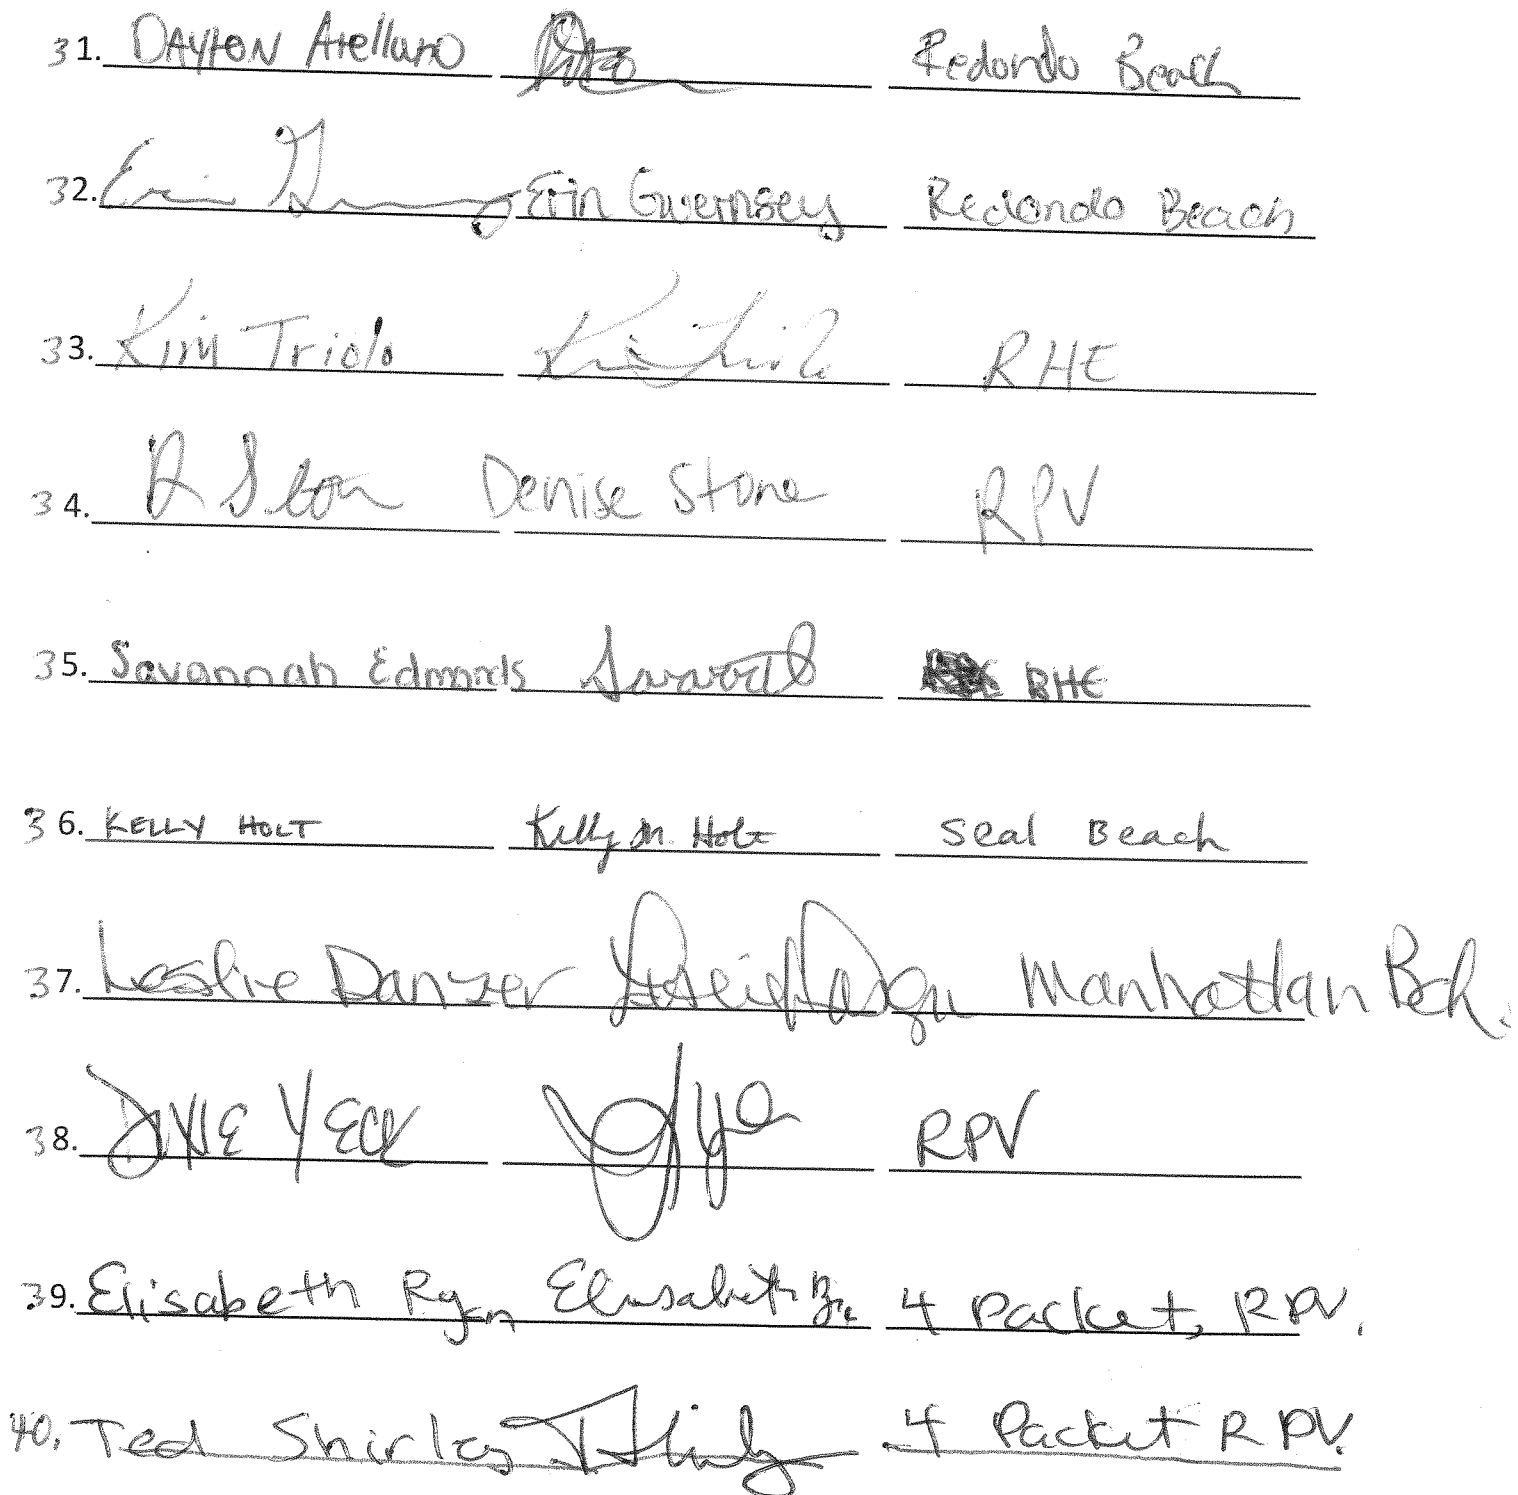 31. DAYTON Arellano Redondo Beach
32. Erin Guernsey Redondo Beach
33. Kim Triolo Kim Triolo RHE
34. D Stone Denise Stone RPV
35. Savannah Edmonds RHE
36. KELLY HOLT Kelly M. Holt Seal Beach
37. Leslie Danzer Manhattan Bch.
38. RPV
39. Elisabeth Ryan Elisabeth Ryan 4 Packet, RPV.
40. Ted Shirley 4 Packet RPV.